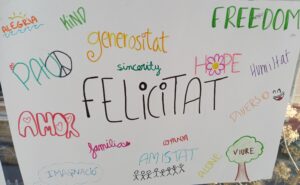 ALEGRIA
KIND
generositat
FREEDOM
PAU
sincerity
HOPE
Humiltat
FELICITAT
DIVERSIÓ
AMOR
família
AMISTAT
VIURE
IMAGINACIÓ